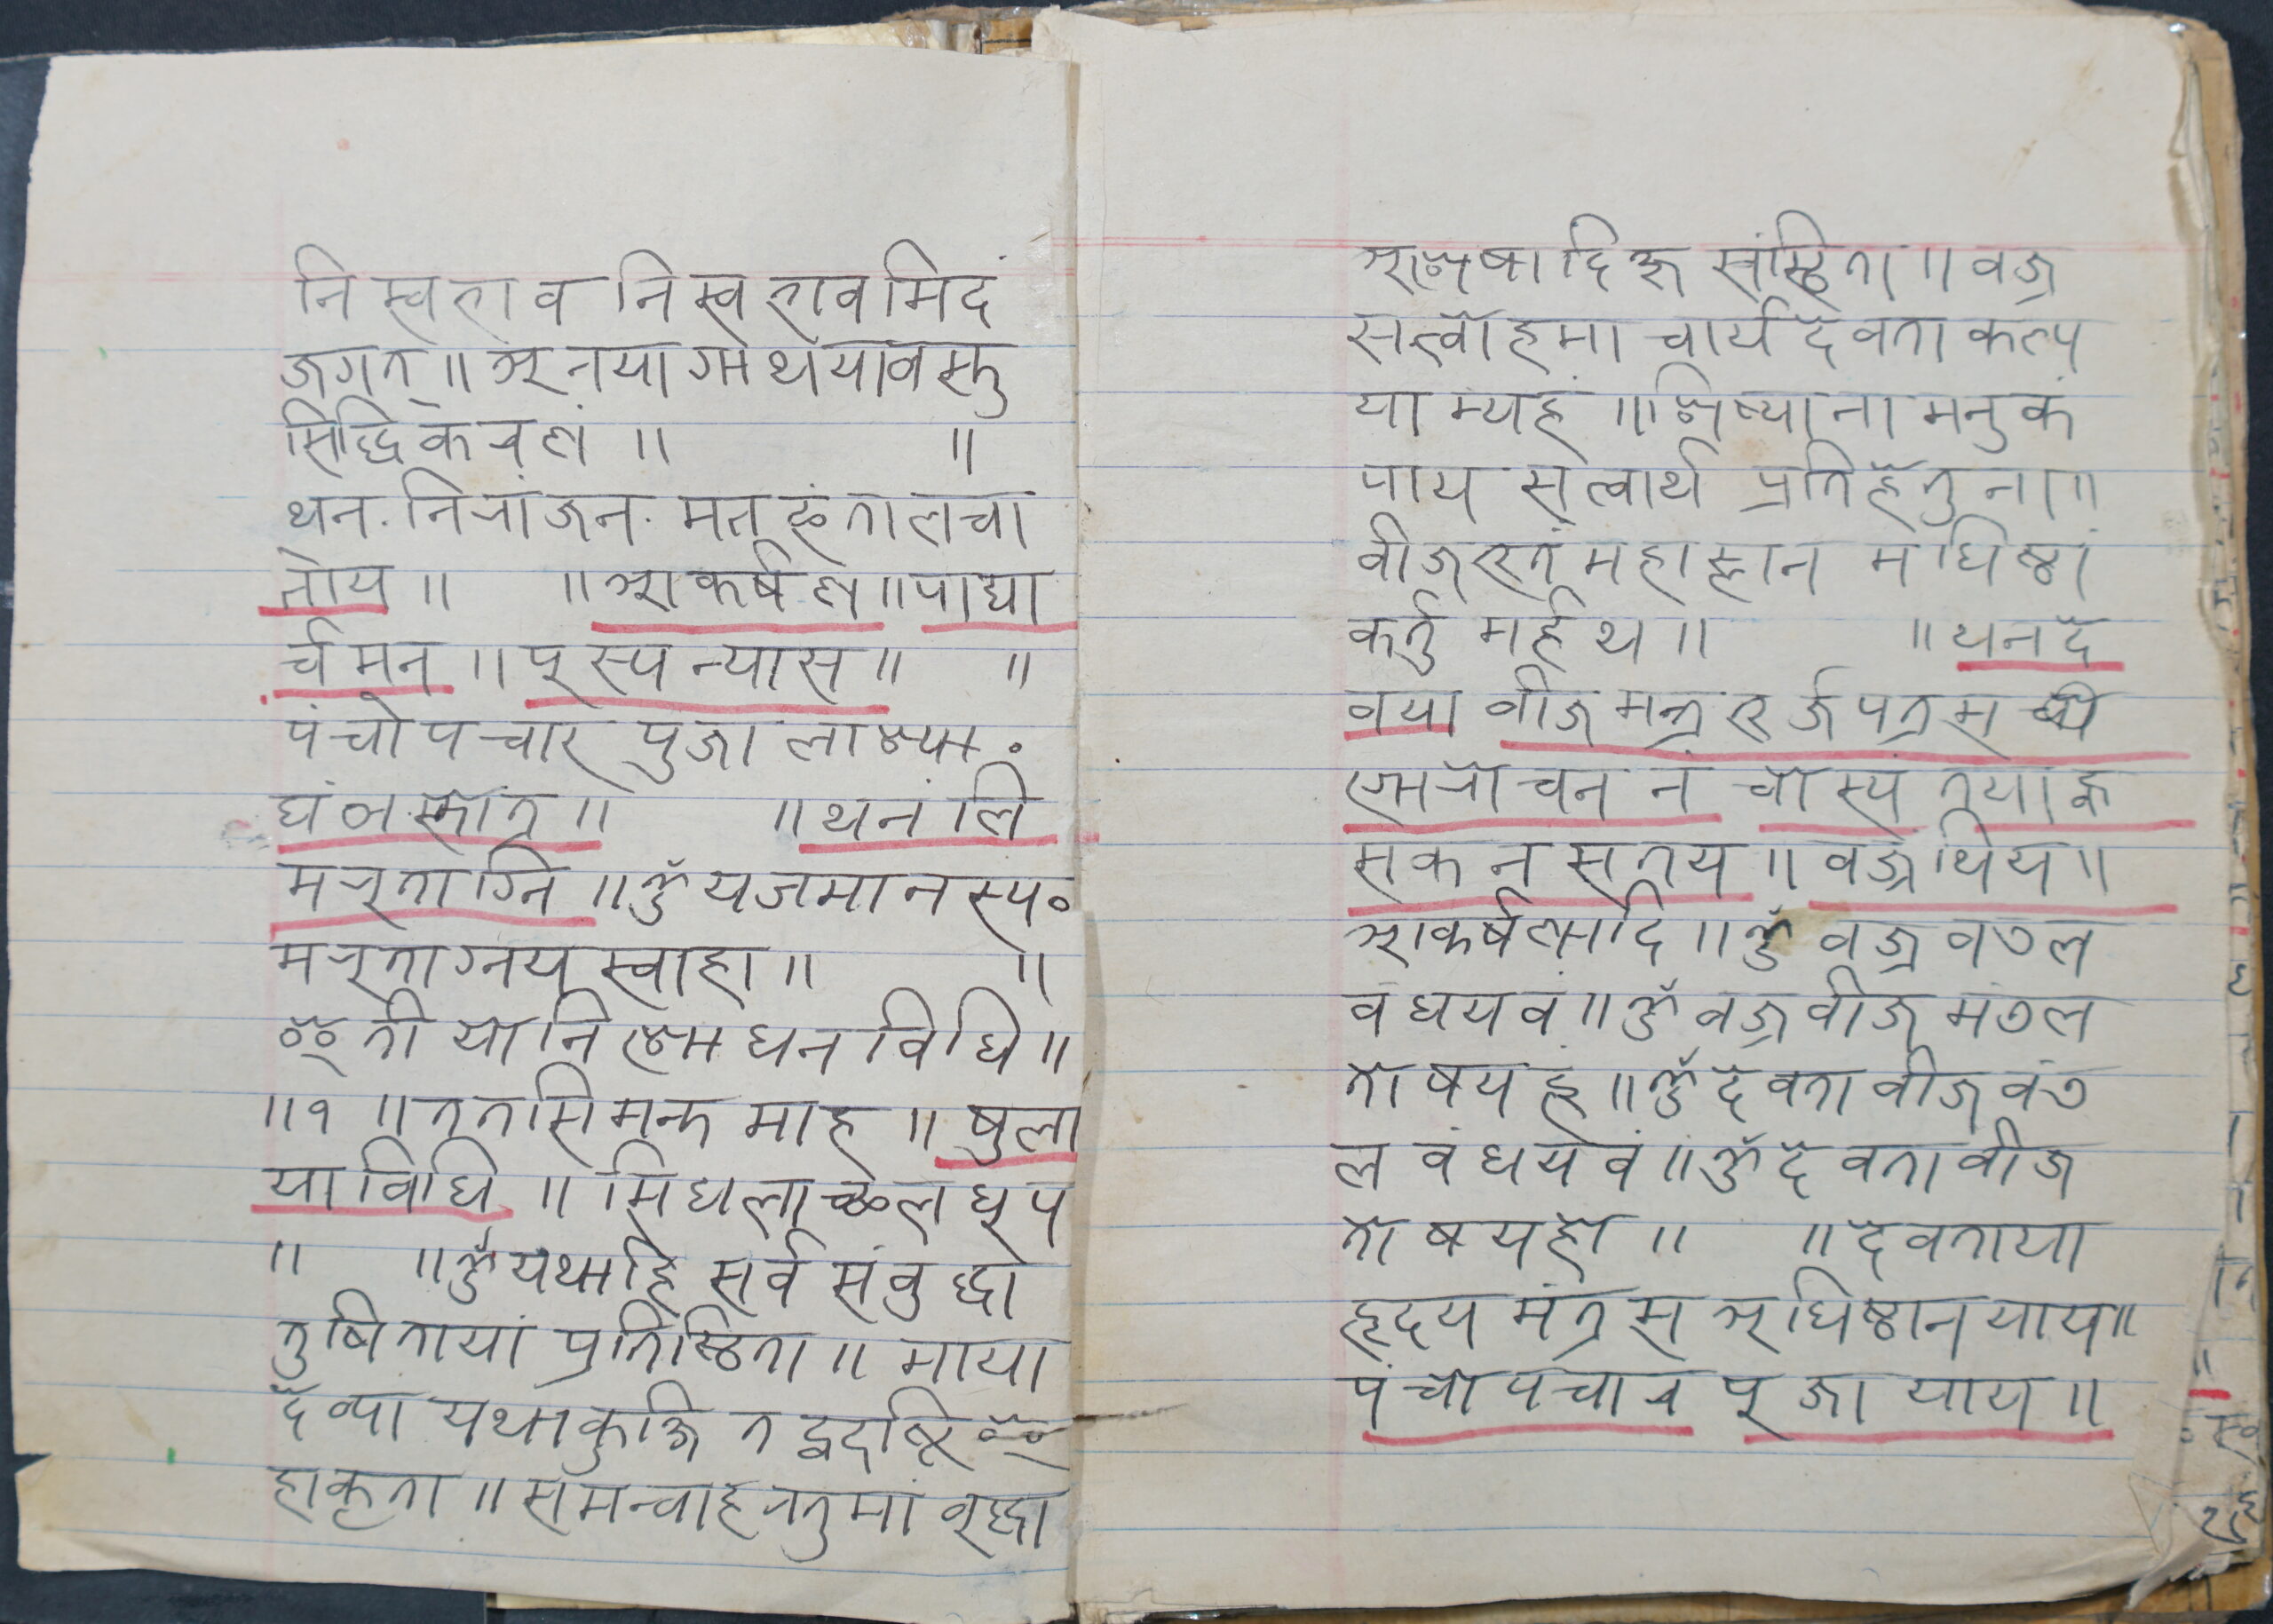 निस्वभाव निस्वभावमिदं
जगत्॥ अनया गाथयावस्तु
सिद्धिकरणं ॥ ॥
थन. निरांजन. मत तालचा
नोय ॥ ॥ आकर्षण ॥ पाद्या
र्चमन ॥ पुस्प न्यास ॥ ॥
पंचोपचार पुजा लाश्या.
घंण.स्तोत्र ॥ ॥ थनंलि
मरुताग्नि ॥ ॐ यजमानस्य॰
मरुताग्नय स्वाहा ॥ ॥
इति योनि शोधन विधि ॥
॥ १ ॥ ततसिमन्त माह ॥ षुला
याविधि ॥ सिघलाच्छेल धूप
॥ ॥ ॐ यथाहि सर्व संवुद्धा
तुषितायां प्रतिस्थिता ॥ माया
देव्या यथाकुक्षि
हाकृता ॥ समन्वाहरतुमां वुद्धा
अशेषादिक्षु संस्थिता ॥ वज्र
सत्वोहमाचार्य देवता कल्प
याम्यहं ॥ शिष्यानामनुकं
पाय सत्वार्थ प्रतिहेतुना ॥
वीजभूतं महाज्ञान मधिष्ठां
कर्तुमर्हथ ॥ ॥ थनदे
वया वीजमन्त्र भुर्जपत्रस
गोरोचननं चोस्यं तयाक्व
सकनसतय ॥ वज्रथिय ॥
आकर्षणादि ॥ ॐ वज्र वंडल
वंधयवं ॥ ॐ वज्रवीज मंडल
तोषयहुं ॥ ॐ देवतावीज वंड
ल वंधयवं ॥ ॐ देवतावीज
तोषयहो ॥ ॥ देवताया
हृदय मंत्रस अधिष्ठानयाय ॥
पंचोपचार पूजा याय ॥